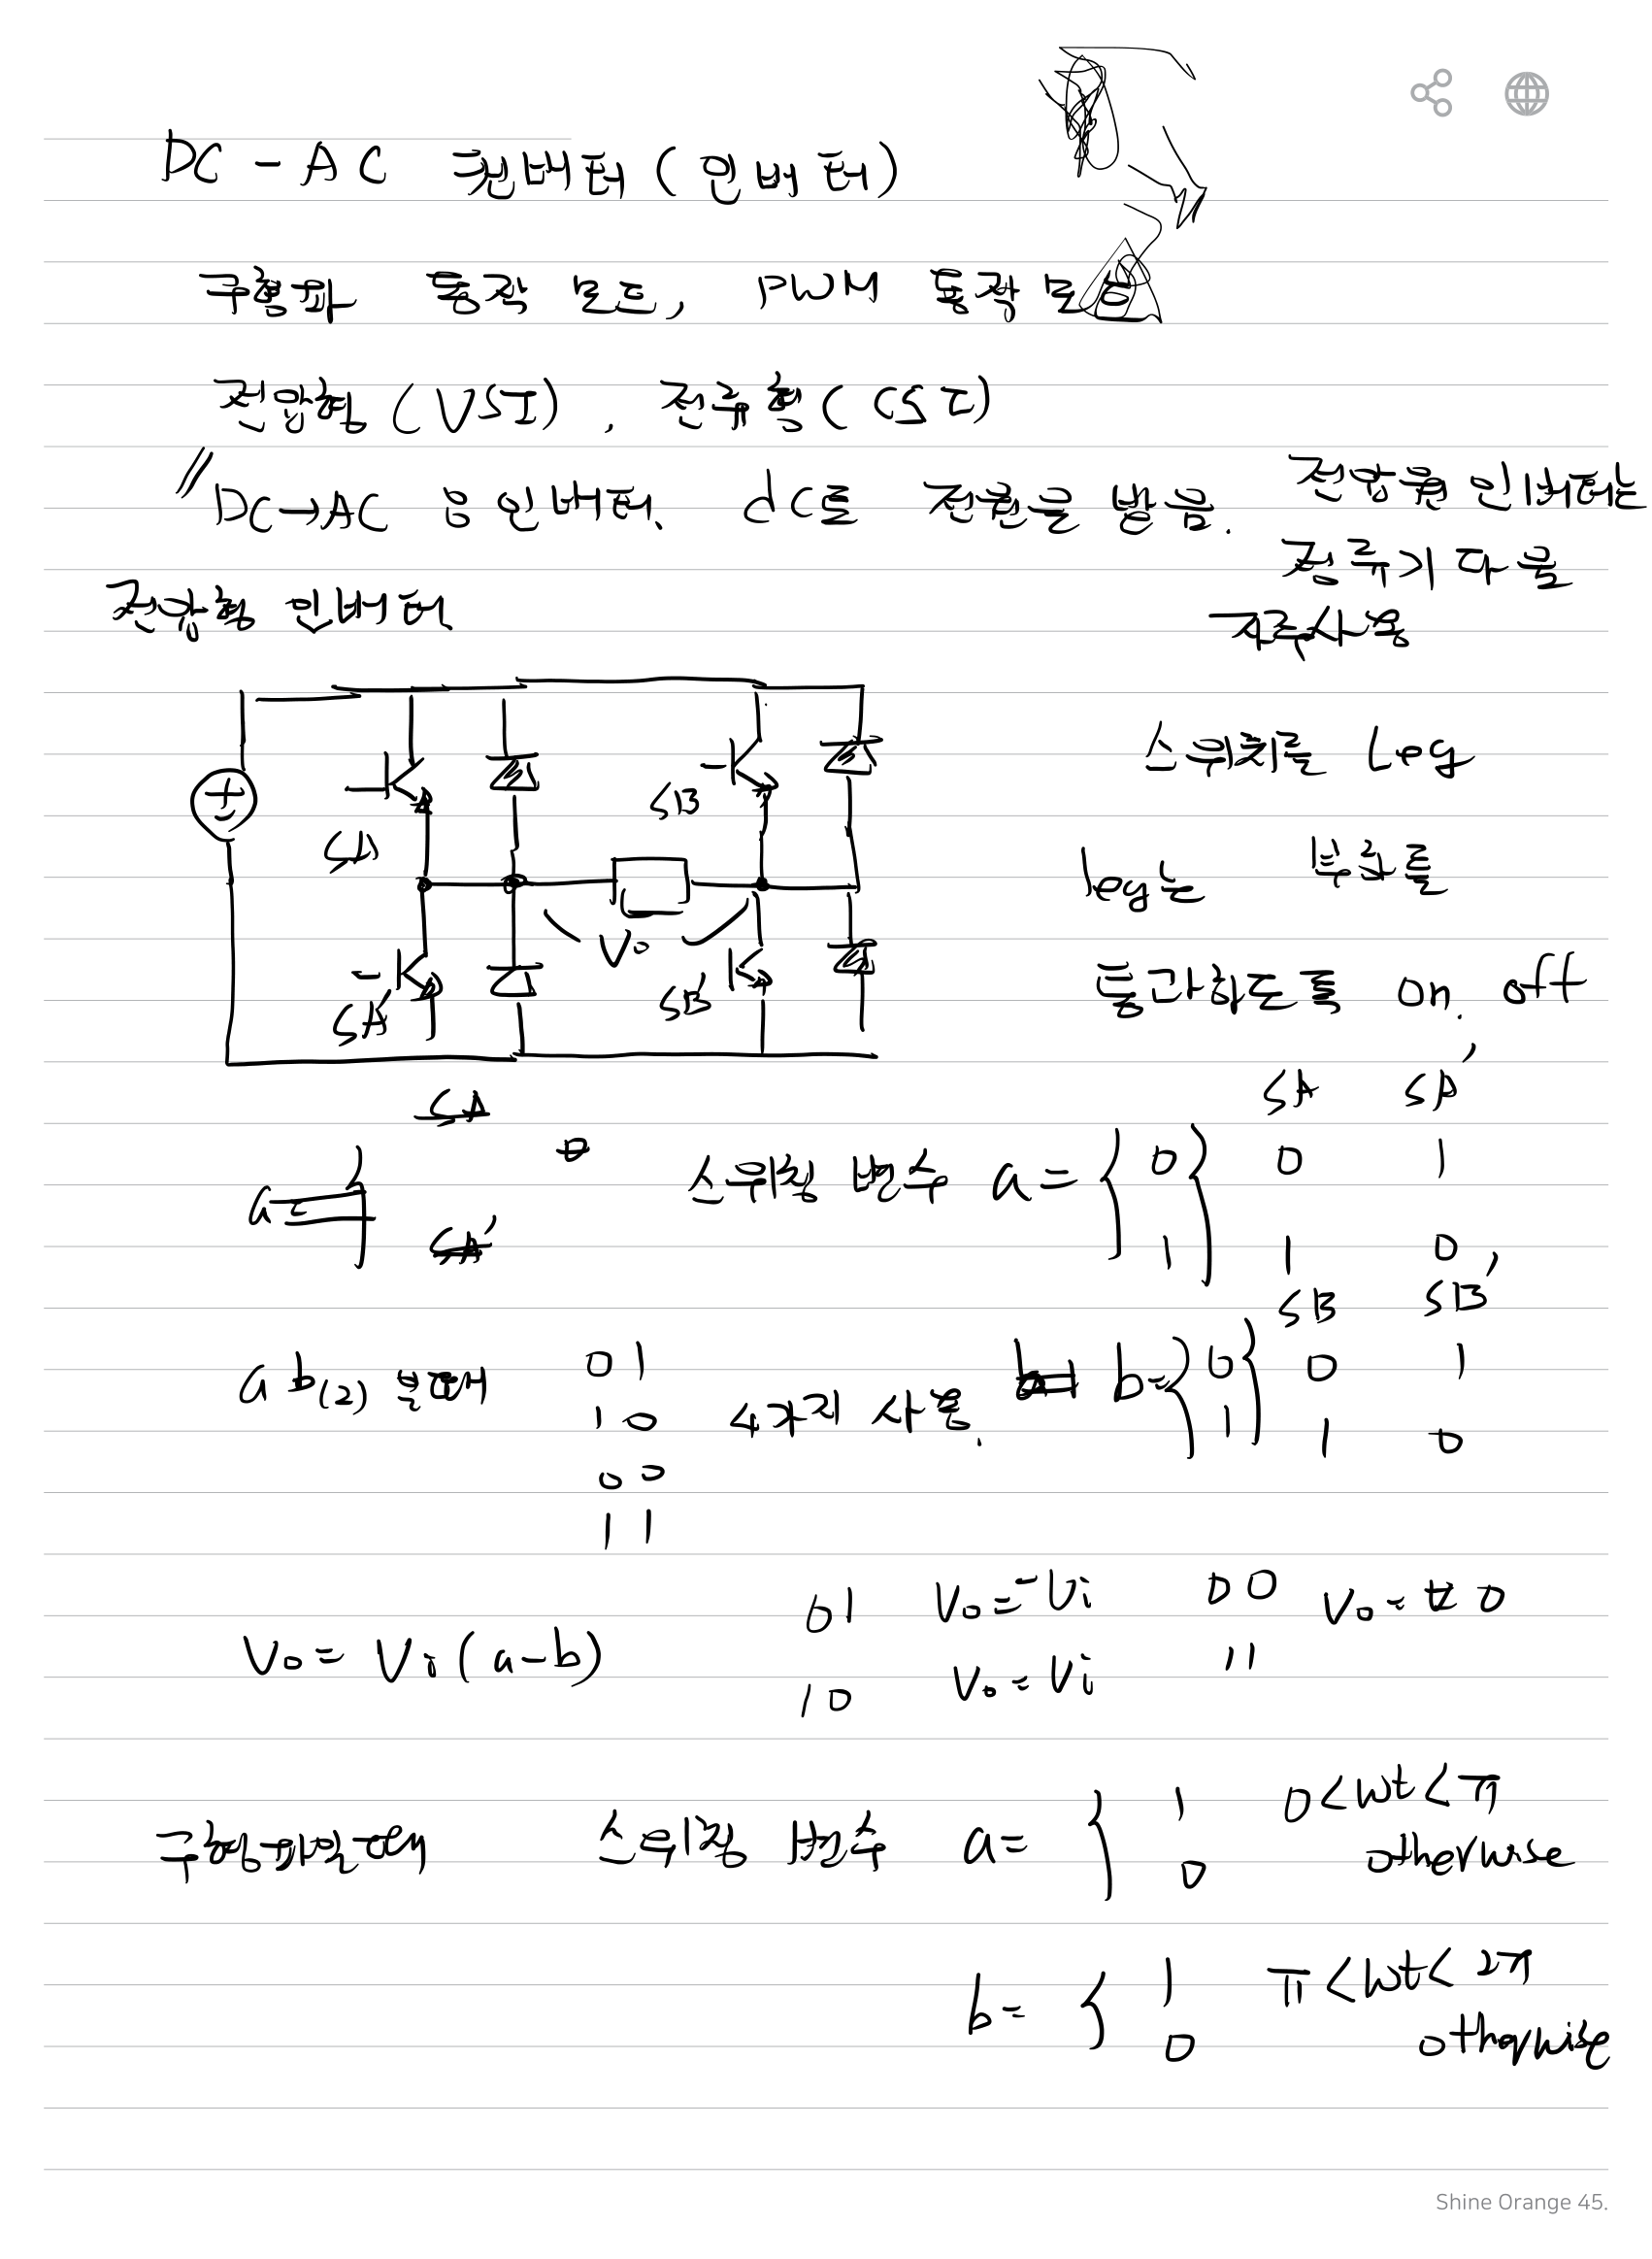 DC - AC 컨버터 (인버터)
구형파 동작 모드, PWM 동작 모드
전압형 (VSI), 전류형 (CSI)
DC→AC 용 인버터. dc를 전원을 받음.
전압원 인버터는
정류기 다음
자주사용
전압형 인버터
스위치를 Leg
SA
SB
leg는 부하를
Vo
통과하도록 on. off
SA'
SB'
SA SA'
스위칭 변수 a= { 0 } 0 1
1 1 0
SB SB'
ab(2) 볼때 01
10 4가지 사용.
00
11
b= { 0 } 0 1
1 1 0
01 Vo=-Vi 00 Vo= 0
Vo= Vi (a-b)
10 Vo=Vi 11
구형파일때 스위칭 변수 a= { 1 0<wt<π
0 otherwise
b= { 1 π<wt<2π
0 otherwise
Shine Orange 45.